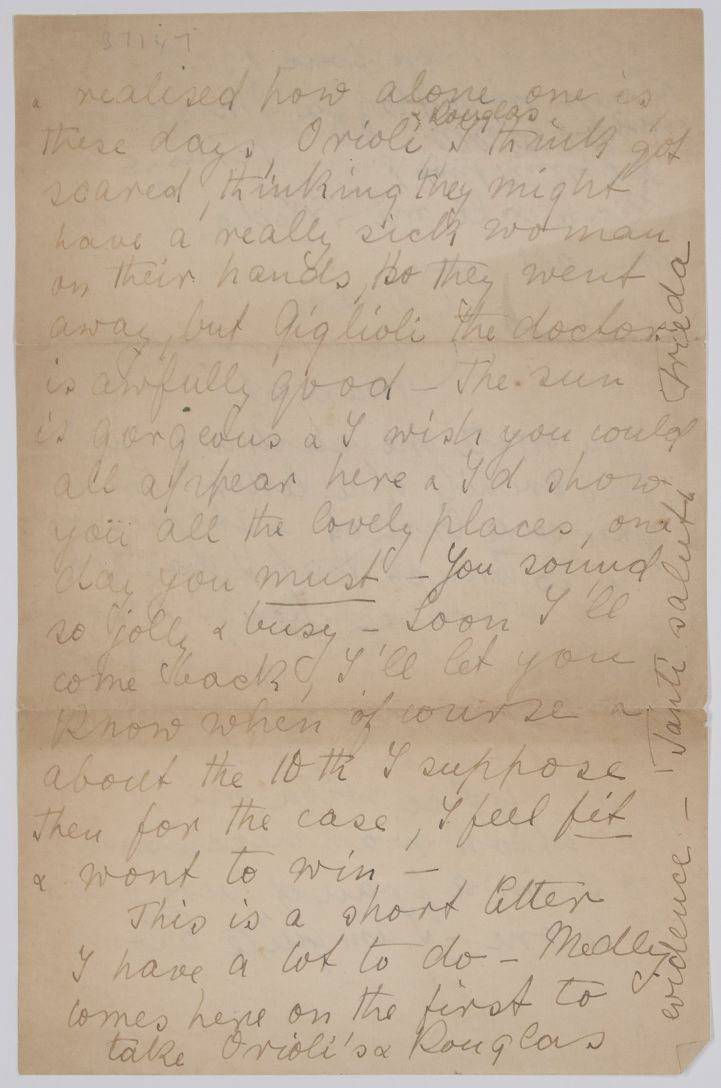 37147
& realised how alone one is
these days, Orioli & Douglas I think got
scared, thinking they might
have a really sick woman
on their hands, so they went
away, but Giglioli the doctor
is awfully good – The sun
is gorgeous & I wish you could
all appear here & I'd show
you all the lovely places, one
day you must – You sound
so jolly & busy – Soon I'll
come back, I'll let you
know when of course &
about the 10th I suppose
Then for the case, I feel fit
& wont to win –
This is a short letter
I have a lot to do – Medley
comes here on the first to
take Orioli's & Douglas
evidence – – Tanti saluti Frieda